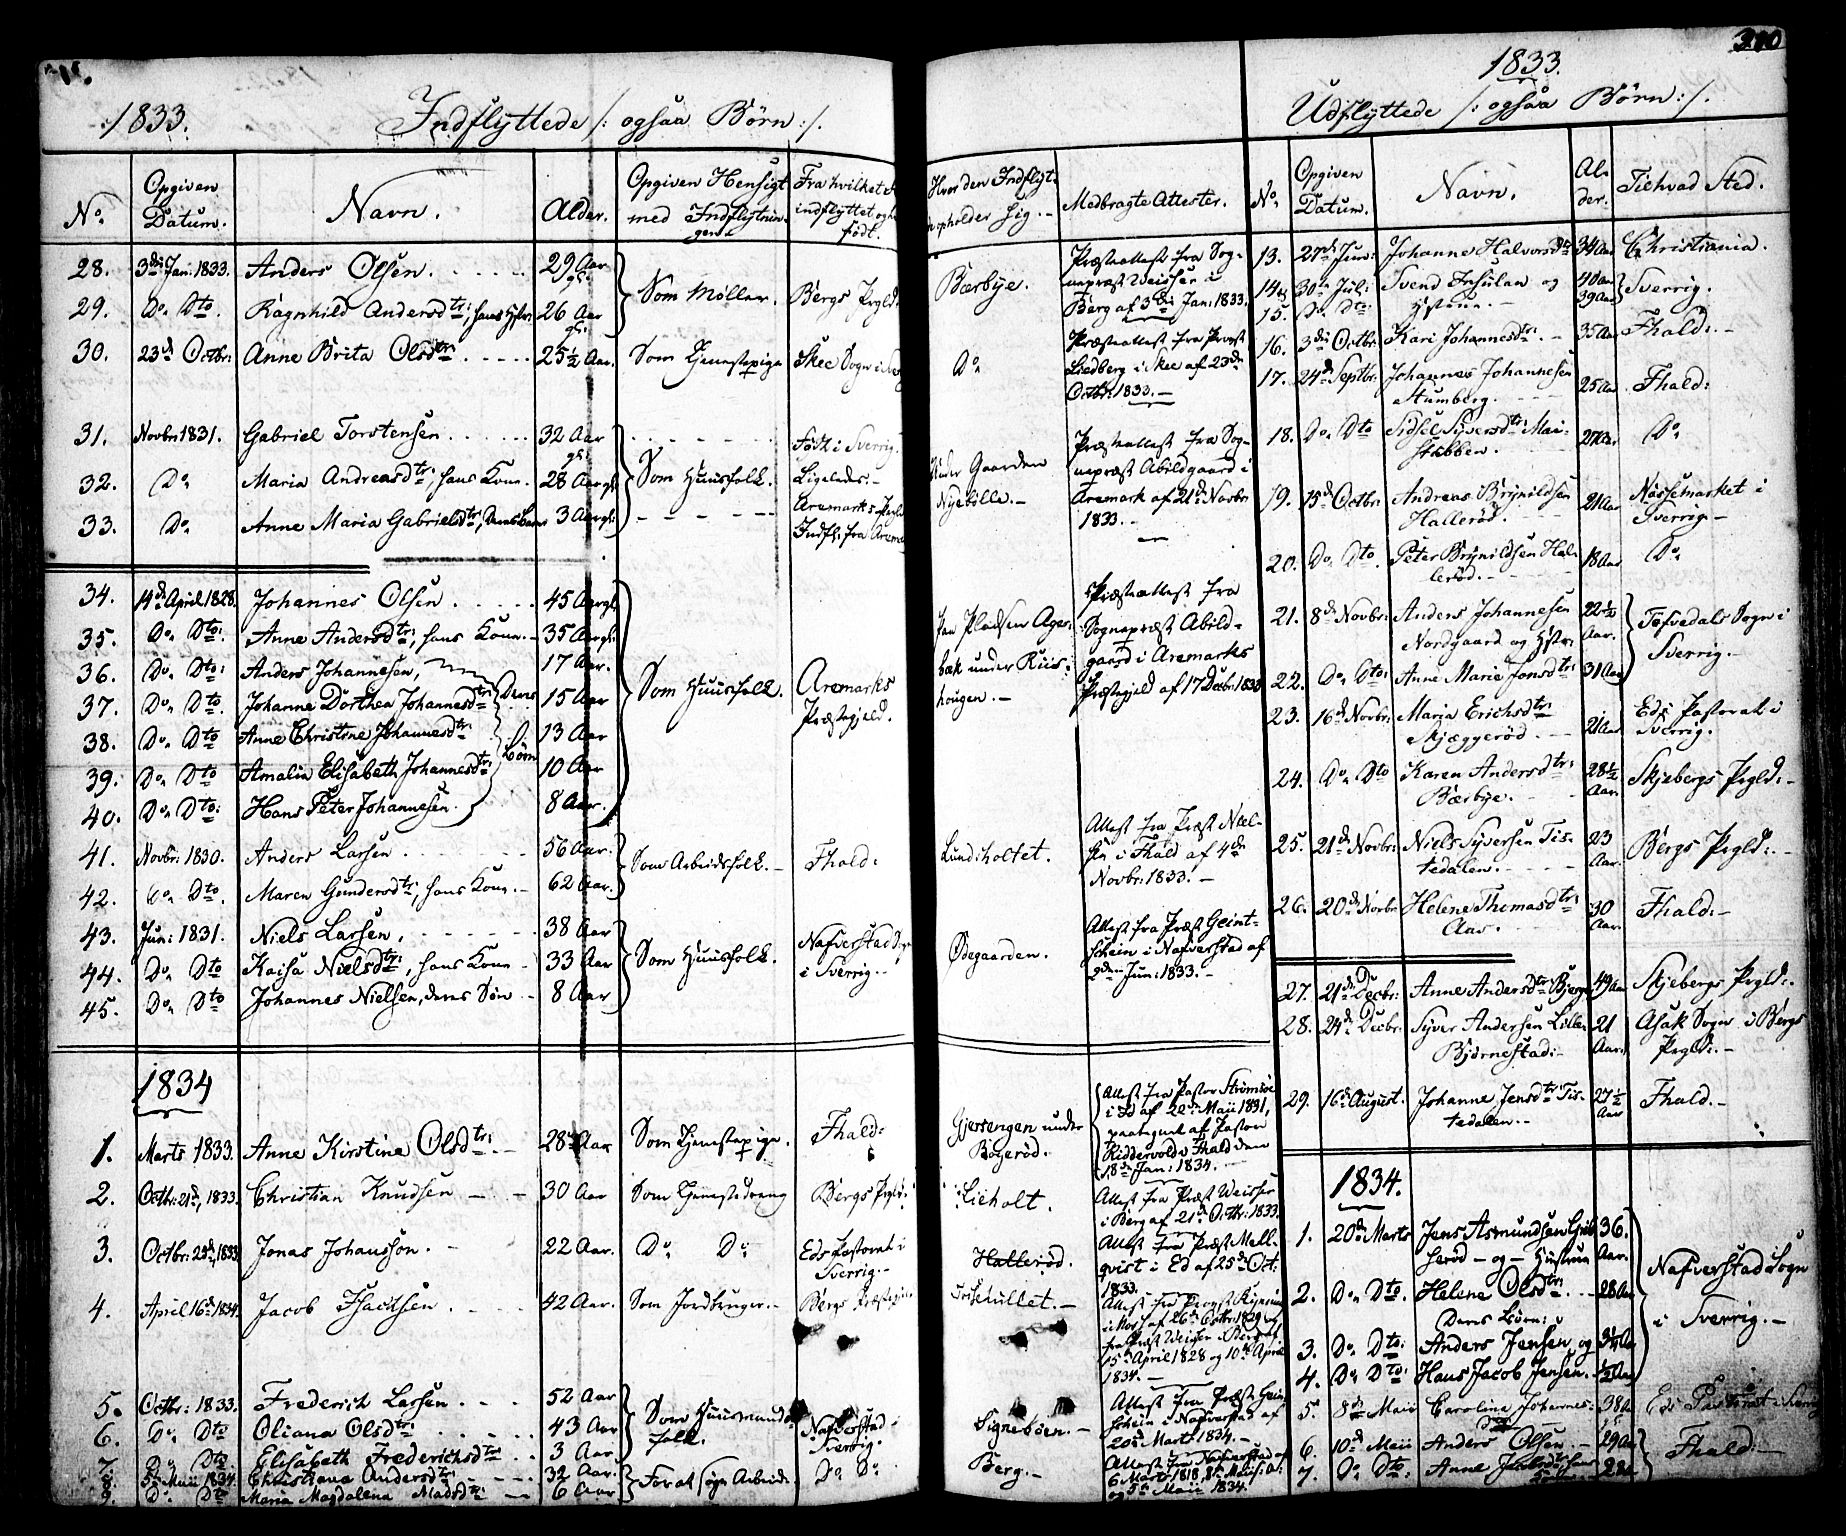 1833. Indflyttede /: ogsaa Børn :/.
No. Opgiven Datum. Navn. Alder. Opgiven Hensigt med Indflytningen. Fra hvilket indflyttet og født.
28. 3die Jan: 1833. Anders Olsen. 29 Aar gl: Som Møller. Bergs Prgld:
29. Do. Dto. Ragnhild Andersdtr:, hans Hstr: 26 Aar gl:
30. 23de Octbr: Anne Brita Olsdtr: 25½ Aar. Som Tjenestepige Skee Sogn i
31. Novbr: 1831. Gabriel Torstensen 32 Aar gl: Født i Sverrig.
32. Do Maria Andreasdtr:, hans Kone. 28 Aar gl: Som Huusfolk. Ligeledes.
33. Do Anne Maria Gabrielsdtr:, Deres Barn 3 Aar gl: Aremarks Prgld
Indfl: fra Arem
34. 14de April 1828. Johannes Olsen 45 Aar gl:
35. Do. Dto: Anne Andersdtr:, hans Kone. 35 Aar gl:
36. Do. Dto: Anders Johannesen, 17 Aar. Som Huusfolk. Aremarks Præstegjeld.
37. Do. Dto. Johanne Dorthea Johannesdtr: Deres 15 Aar
38. Do. Dto Anne Christine Johannesdtr: Børn 13 Aar
39. Do. Dto Amalia Elisabeth Johannesdtr: 10 Aar
40. Do. Dto: Hans Peter Johannesen. 8 Aar.
41. Novbr: 1830. Anders Larsen 56 Aar. Som Arbeidsfolk. Fhald:
42. Do. Dto. Maren Gundersdtr:, hans Kone. 62 Aar.
43. Jun: 1831. Niels Larsen, 38 Aar Nafverstad Sogn
44. Do. Dto Kaisa Nielsdtr:, hans Kone 33 Aar Som Huusfolk. i Sverrig.
45. Do. Dto Johannes Nielsen, deres Søn 8 Aar
1834
1. Marts 1833. Anne Kirstine Olsdtr: 28 Aar Som Tjenestepige. Fhald:
2. Octbr: 21de, 1833. Christian Knudsen 30 Aar Som Tjenestedreng Bergs Prgld:
3. Octbr: 25de, 1833 Jonas Johansson. 22 Aar. Do Do Eds Pastorat i Sverrig.
4. April 16de 1834. Jacob Isachsen 42 Aar. Som Jordbruger. Bergs Præstegjeld
5. Octbr: 1833. Frederich Larsen 52 Aar Som Huusmandsfolk. Nafverstad i Sverrig.
6. Do. Dto Oliana Olsdtr: 43 Aar
7. Do. Dto Elisabeth Frederichsdtr: 3 Aar
8. 5te Maii 1834. Christiana Andersdtr: 32 Aar. For at søge Arbeide Do Do
9. Do. Dto Maria Magdalena Madsdtr: 6 Aar
Hvor den Indflyttede opholder sig. Medbragte Attester.
Bærbye. Præsteattest fra Sognepræst Weisser i
Berg af 3die Jan: 1833.
Do Præsteattest fra Provst
Liedberg i Skee af 23de
Octbr: 1833.
Under Gaarden Præsteattest fra Sognepræst Abildgaard i
Nyebille. Aremark af 21de Novbr
1833.
Paa Pladsen Agerbæk under Riishougen. Præsteattest fra
Sognepræst Abildgaard i Aremarks
Præstegjeld af 17 Decbr: 1833
Lundeholtet. Attest fra Præst Nielsen i Fhald af 4de
Novbr: 1833.
Ødegaarden. Attest fra Præst Geintschein i Nafverstad af
2den Jun: 1833.
Gjersengen under Bøgerød. Attest fra Pastor Strømsøe
i Id af 22de Maii 1831,
paategnet af Pastor
Riddervold i Fhald den
18de Jan: 1834.
Lieholt. Attest fra Præst Weisser
i Berg af 21de Octbr: 1833.
Hallerød. Attest fra Præst Mellqvist i Ed af 25de Oct:
1833.
Attest fra Provst
i af 26de Octbr: 1829 og
fra Præst Weisser i Berg af
15de April 1828 og 10de April
1834.
Signebøen. Attest fra Præst Geintschein i Nafverstad af
20de Marts 1834.
Berg. Attest fra Nafverstad af
6 Marts 1818,
og 5te Maii 1834.
310
1833.
Udflyttede /: ogsaa Børn :/.
No. Opgiven Datum. Navn. Alder. Til hvad Sted.
13. 27de Jun: Johanne Halvorsdtr 34 Aar Christiania.
14. 30te Jul: Svend Insulan og 40 Aar Sverrig.
15. Do. Dto Hstrue. 39 Aar
16. 3die Octbr: Kari Johannesdtr: 35 Aar Fhald:
17. 24de Septbr: Johannes Johannesen
Stumberg. 25 Aar Fhald:
18. Do. Dto Sidsel Syversdtr: Maistubben. 27 Aar Do
19. 15de Octbr: Andreas Brynildsen
Hallerød. 21 Aar Nøssemarket i
Sverrig.
20. Do. Dto. Peter Brynildsen Hallerød. 18 Aar Do
21. 8de Novbr: Anders Johannesen 22½ Aar. Tøfvedals Sogn i
Nordgaard og Hstr: Sverrig.
22. Do. Dto: Anne Marie Jonsdtr: 31 Aar
23. 16de Novbr: Maria Erichsdtr:
Skjæggerød. 21 Aar Eds Pastorat i
Sverrig.
24. Do. Dto Karen Andersdtr:
Bærbye. 28½ Aar. Skjebergs Prgld:
25. 21de Novbr: Niels Syversen Tistedalen. 23 Aar. Bergs Prgld:
26. 20de Novbr: Helene Thomasdtr:
Aas. 30 Aar. Fhald:
27. 21de Decbr: Anne Andersdtr: Bjerge 49 Aar Skjebergs Prgld:
28. 24de Decbr: Syver Andersen Lille
Bjørnestad: 21 Aar. Asak Sogn i Bergs
Prgld:
29. 16de August. Johanne Jensdtr: Tistedalen. 27½ Aar Fhald.
1834.
1. 20de Marts Jens Asmundsen
og Hustrue 36. Aar. Nafverstad Sogn
2. Do. Dto. Helene Olsdtr: 28 Aar i Sverrig.
Deres Børn:
3. Do. Dto: Anders Jensen, og
4. Do. Dto: Hans Jacob Jensen. ½ Aar
5. 8de Maii Carolina Johannesdtr 38 Aar Eds Pastorat i Sverrig
6. 10de Maii Anders Olsen 29 Aar Fhald:
7. Do. Dto: Anne